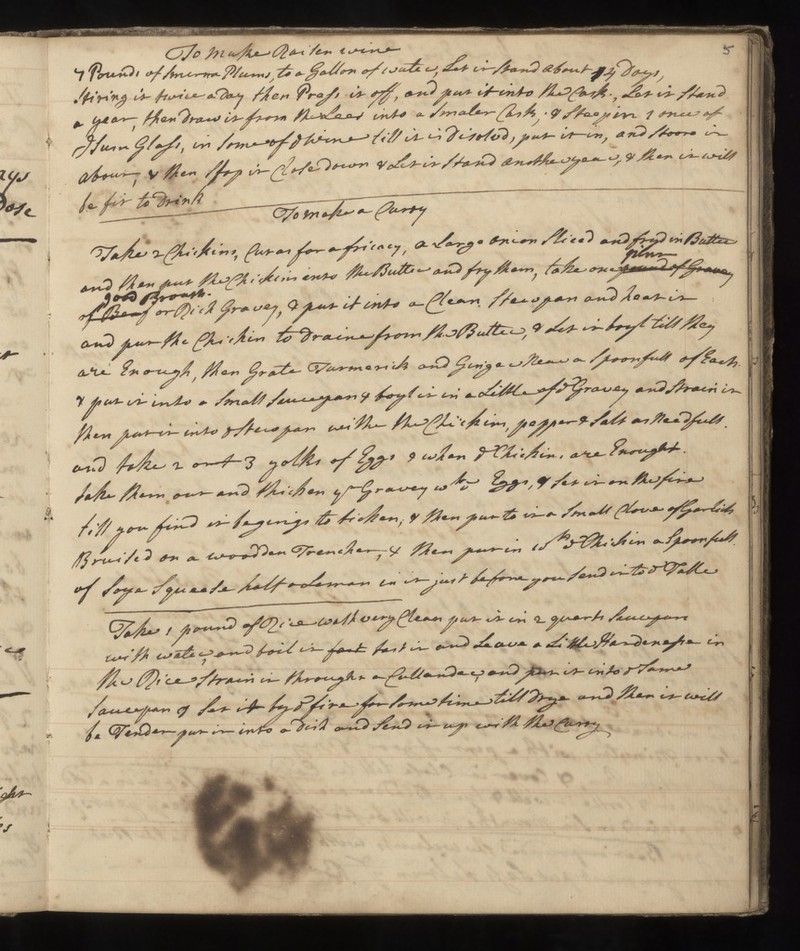 5
To Make Raisen wine
7 Pounds of Smirna Plums, to a Gallon of water, Let it stand about 14 Days,
Stiring it twice a Day then Press it off, and put it into the Cask, Let it stand
a year, then draw it from the Lees into a Smaler Cask, & Steep in it 1 once of
Isun Glass, in Some of ye wine till it is Disolvd, put it in, and Stoore it
about, & then Stop it Close down & Let it Stand another year, & then it will
be fit to Drink
To make a Curry
Take 2 Chickins, Cut as for a fricacy, a Large onion Sliced and fryd in Butter
and then put the Chickins into the Butter and fry them, take one pound of Gravey
good Broath
of Beaf or Rich Gravey, & put it into a Clean Stewpan and heat it
and put the Chickin to Draine from the Butter, & Let it boyl till they
are Enough, then Grate Turmerick and Ginger near a Spoonfull of Each
& put it into a Small Saucepan & boyl it in a Little of ye Gravey and Strain it
then put it into ye Stewpan withe the Chickins, pepper & Salt as Needfull.
and take 2 ort 3 yolks of Eggs & when ye Chickins are Enought.
take them out and thicken ye Gravey wth Eggs, & Set it on the fire
till you find it begings to thicken, & then put to it a Small Clove of Garlick
Bruised on a woodden Trencher, & then put in wth ye Chickin a Spoonfull.
of Soya Squeese half a Leman in it just before you Send it to ye Table
Take 1 pound of Rice wash very Clean put it in 2 quarts Saucepan
with water, and boil it fast tast it and Leave a Little Hardeness in
the Rice Strain it through a Cullander, and put it into ye Same
Saucepan & Set it by ye fire for Sometime till drye and then it will
be Tender put it into a Dish and Send it up with the Curry